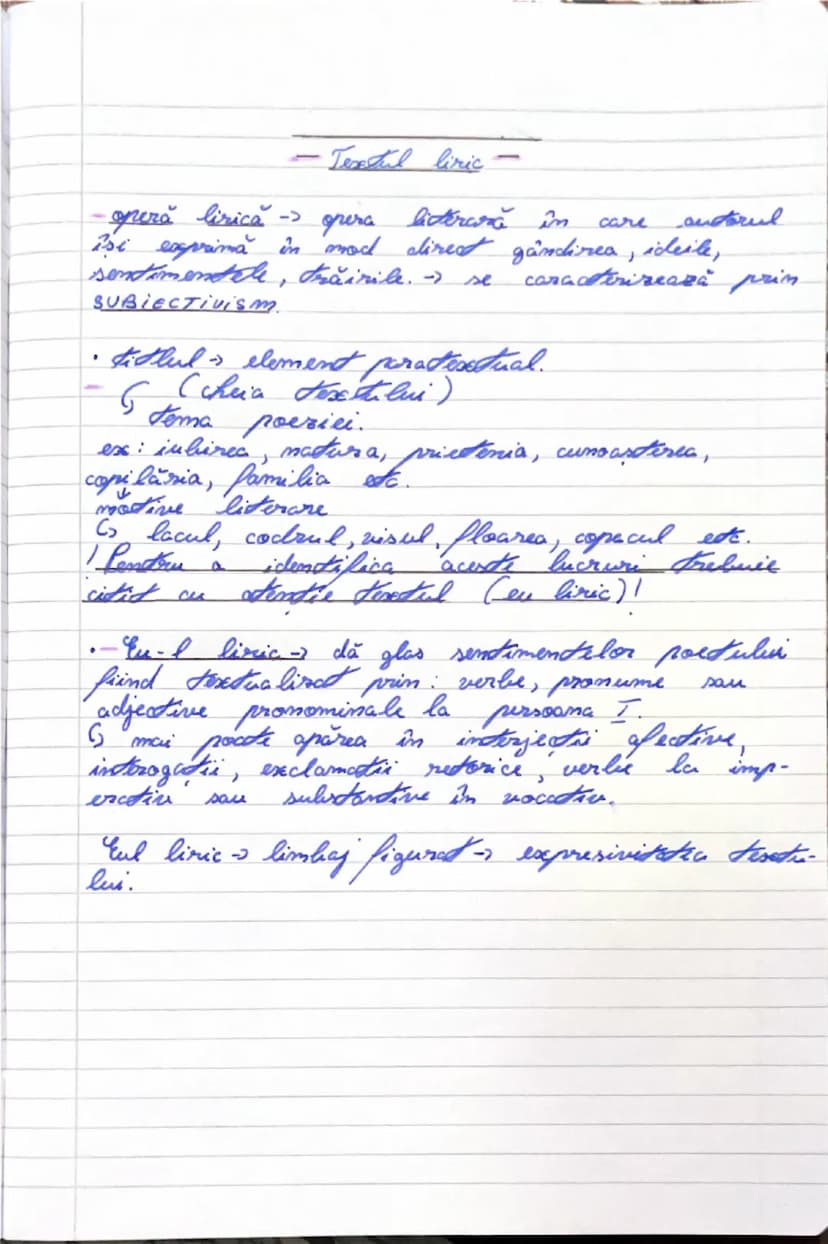 — Textul liric —
- operă lirică -> opera literară în care autorul
își exprimă în mod direct gândirea, ideile,
sentimentele, trăirile. -> se caracterizează prin
SUBIECTIVISM.
• titlul -> element paratextual.
- ↳ (cheia textului)
tema poeziei.
ex: iubirea, natura, prietenia, cunoașterea,
copilăria, familia etc.
motive literare
↳ lacul, codrul, visul, floarea, copacul etc.
! Pentru a identifica aceste lucruri trebuie
citit cu atenție textul (eu liric)!
• - Eu-l liric -> dă glas sentimentelor poetului
fiind textualizat prin: verbe, pronume sau
adjective pronominale la persoana I.
↳ mai poate apărea în interjecții afective,
interogații, exclamații retorice, verbe la imp-
erativ sau substantive în vocativ.
Eul liric -> limbaj figurat -> expresivitatea textu-
lui.